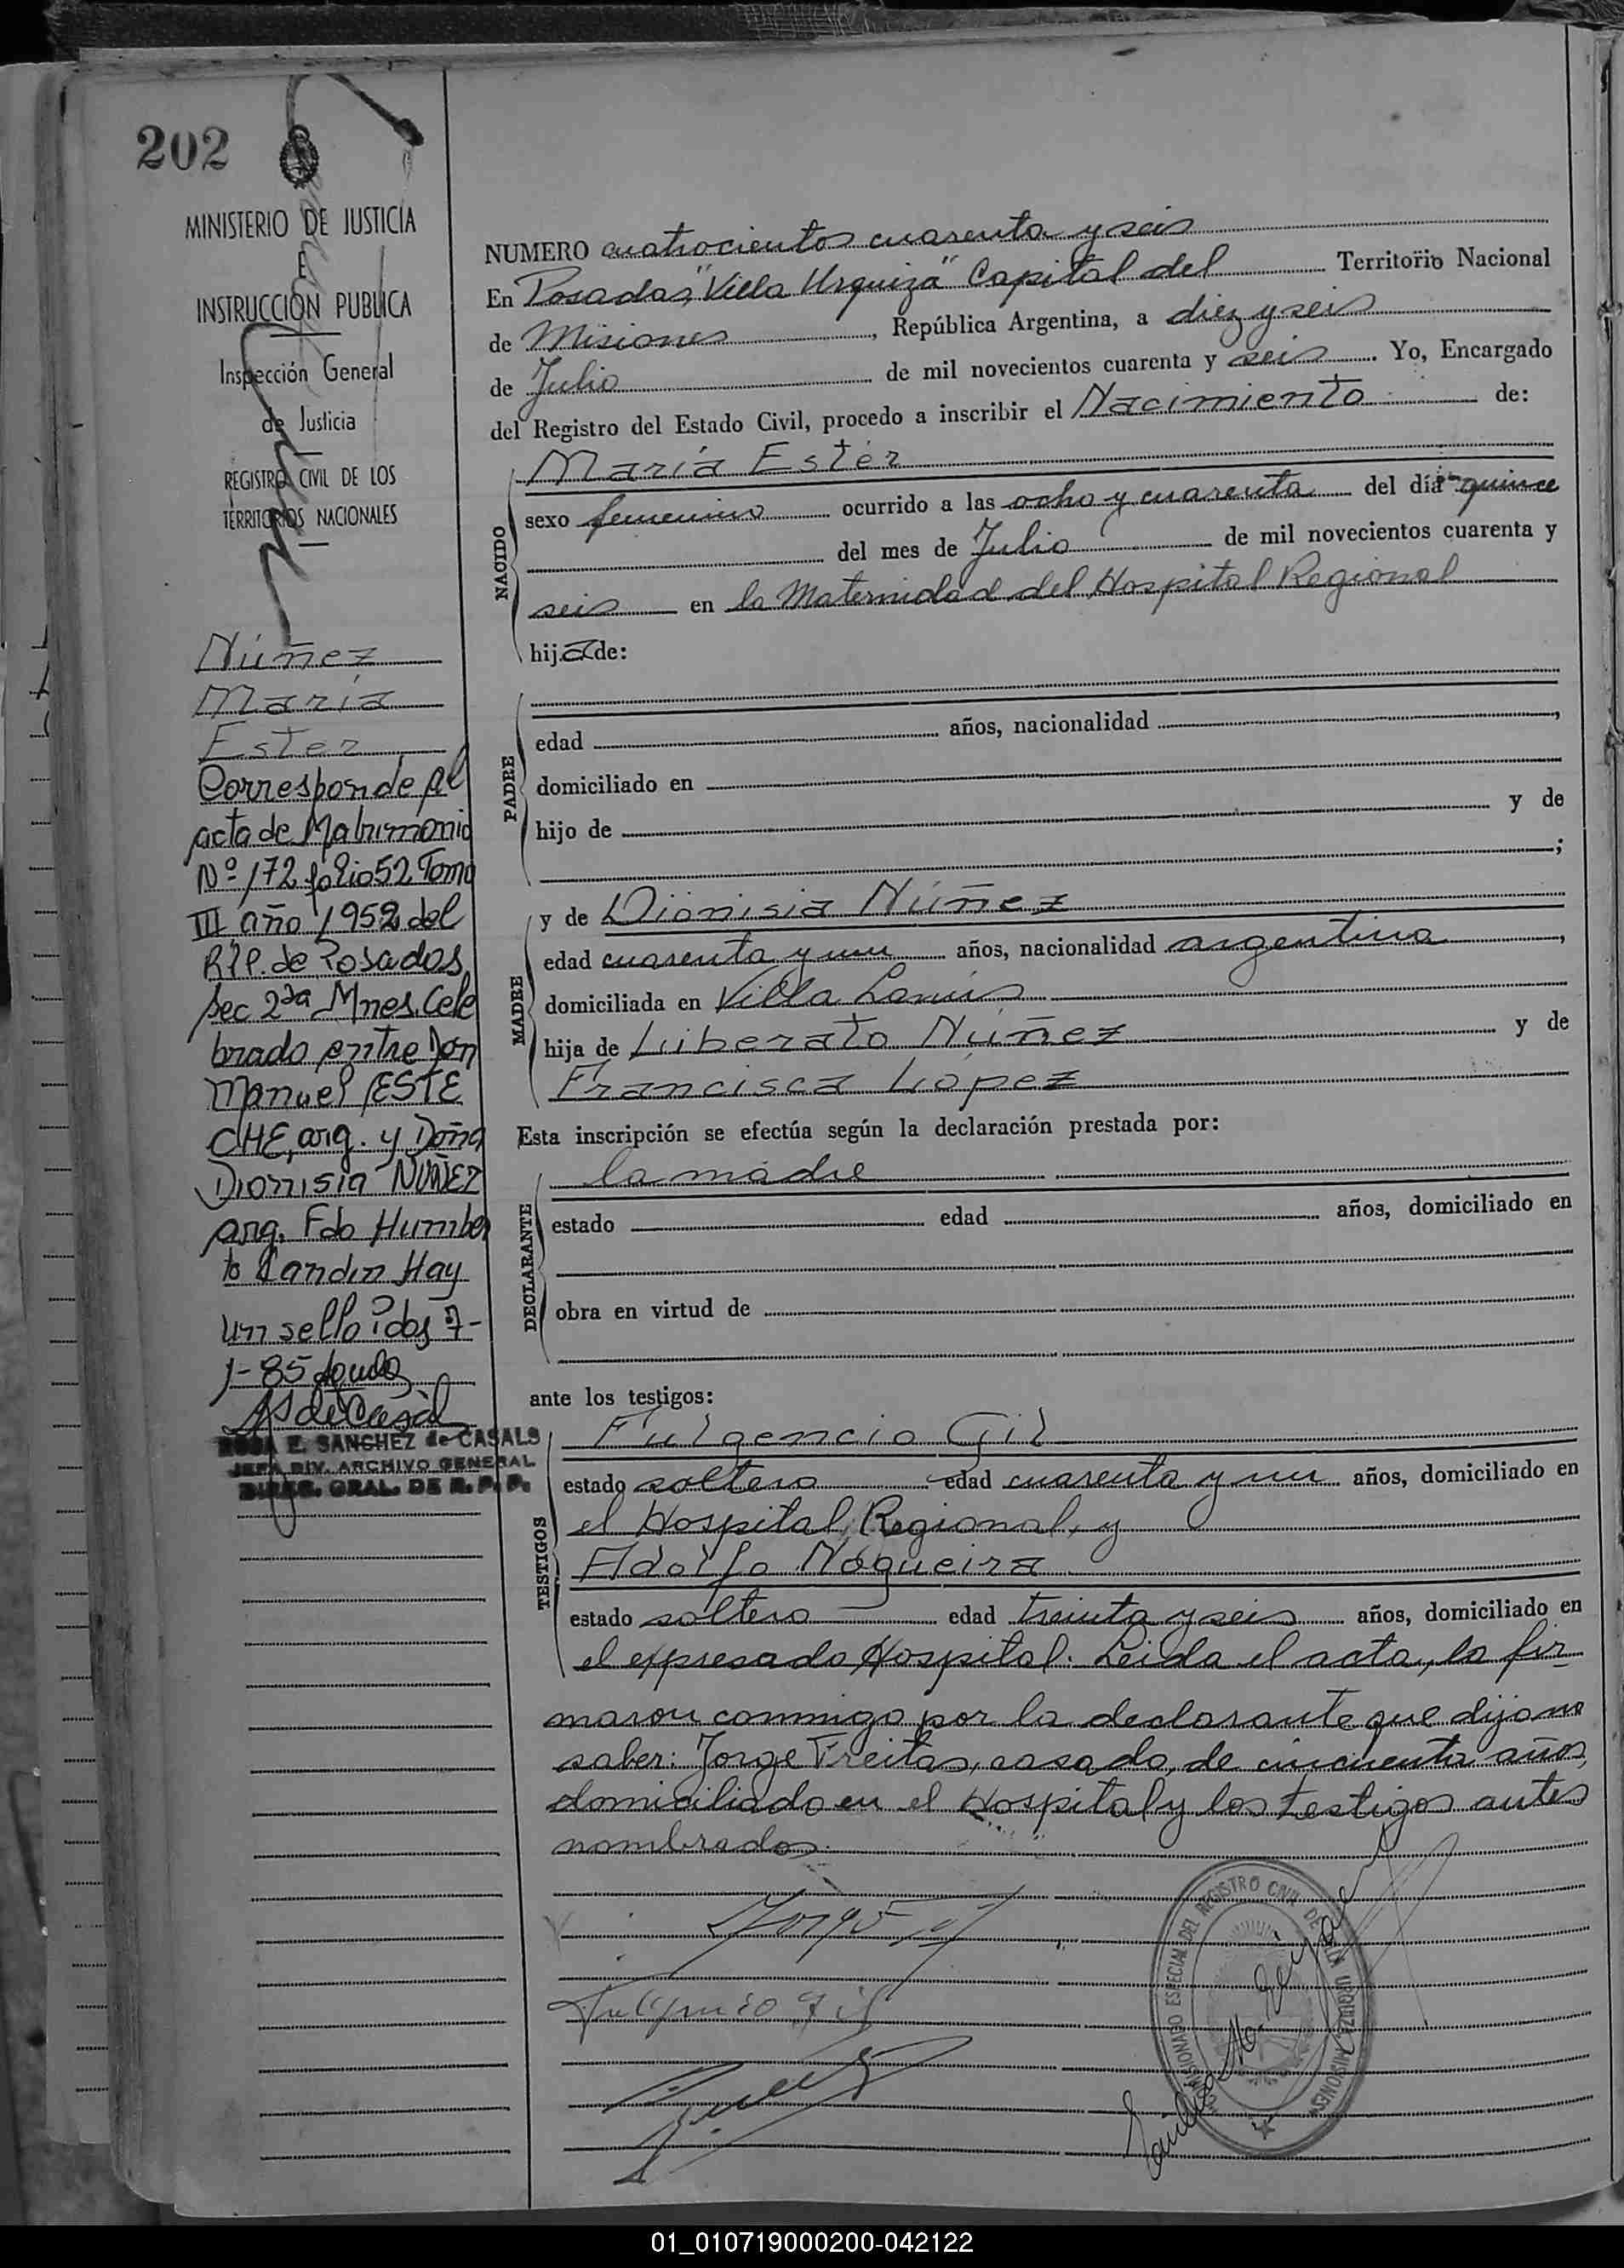 202
MINISTERIO DE JUSTICIA
E
INSTRUCCIÓN PUBLICA
Inspección General
de Justicia
REGISTRO CIVIL DE LOS
TERRITORIOS NACIONALES
Núñez
María
Ester
Corresponde al
acta de Matrimonio
Nº 172 folio 52 Tomo
III año 1952 del
R.P. de Posadas
sec 2da Mnes. Cele
brado entre Don
Manuel ESTE
CHE, arg. y Doña
Dionisia NUÑEZ
arg. Fdo Humber
to Landin Hay
un sello Pdas 7-
1-85
SANCHEZ de CASALS
JEFA DIV. ARCHIVO GENERAL
DIREC. GRAL. DE R. P. P.
NUMERO cuatrocientos cuarenta y seis
En Posadas, "Villa Urquiza" Capital del Territorio Nacional
de Misiones, República Argentina, a diez y seis
de Julio de mil novecientos cuarenta y seis. Yo, Encargado
del Registro del Estado Civil, procedo a inscribir el Nacimiento de:
NACIDO
María Ester
sexo femenino ocurrido a las ocho y cuarenta del día quince
del mes de Julio de mil novecientos cuarenta y
seis en la Maternidad del Hospital Regional
hija de:
PADRE
edad años, nacionalidad ,
domiciliado en
hijo de y de
;
MADRE
y de Dionisia Núñez
edad cuarenta y un años, nacionalidad argentina,
domiciliada en Villa Lanús
hija de Liberato Núñez y de
Francisca Lopez
Esta inscripción se efectúa según la declaración prestada por:
DECLARANTE
la madre
estado edad años, domiciliado en
obra en virtud de
ante los testigos:
TESTIGOS
Fulgencio Gil
estado soltero edad cuarenta y un años, domiciliado en
el Hospital Regional, y
Adolfo Nogueira
estado soltero edad treinta y seis años, domiciliado en
el expresado Hospital. Leida el acta, la fir_
maron conmigo por la declarante que dijo no
saber: Jorge Freitas, casado, de cincuenta años,
domiciliado en el Hospital y los testigos antes
nombrados.
Fulgencio Gil
COMISIONADO ESPECIAL DEL REGISTRO CIVIL DE VILLA URQUIZA MISIONES
01_010719000200-042122